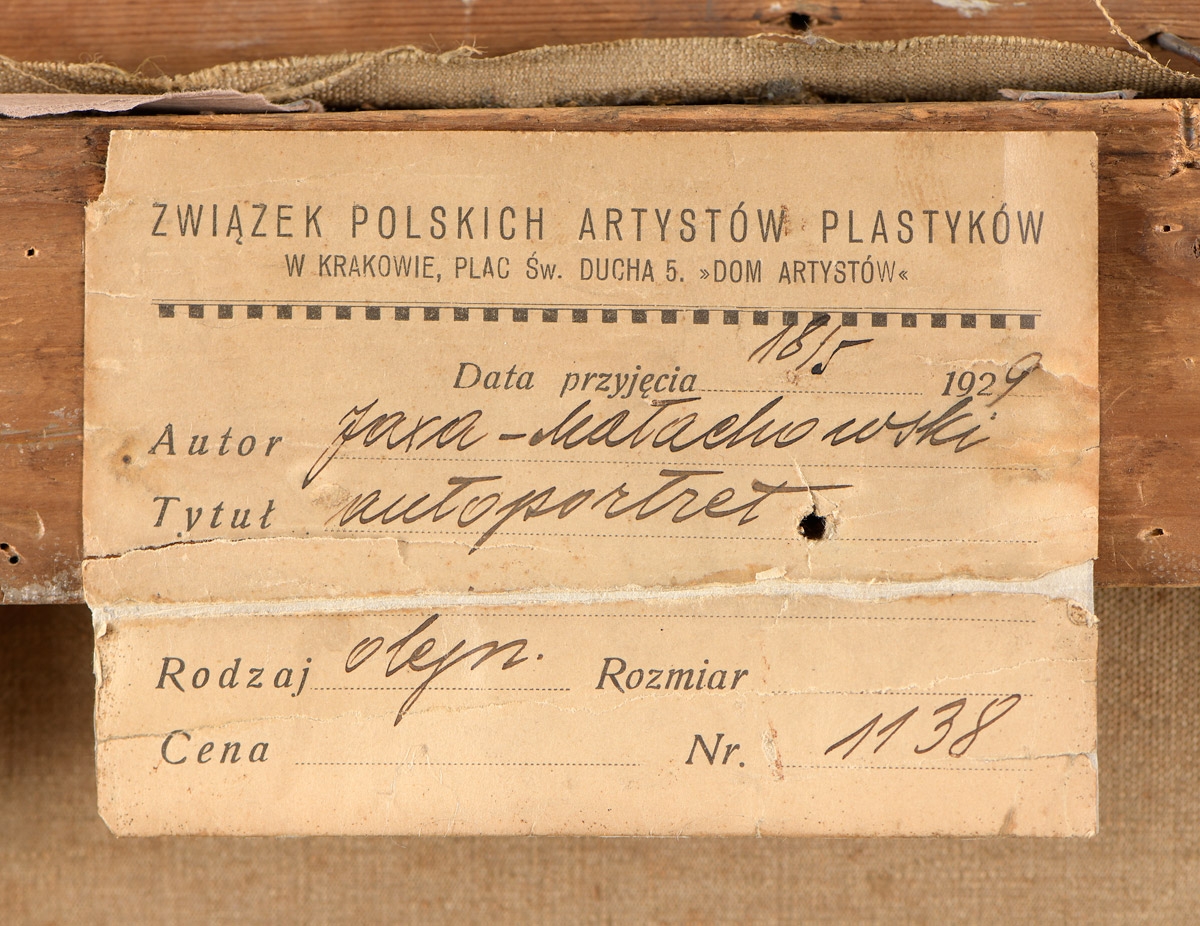 ZWIĄZEK POLSKICH ARTYSTÓW PLASTYKÓW
W KRAKOWIE, PLAC ŚW. DUCHA 5. »DOM ARTYSTÓW«
Data przyjęcia 18/5 1929
Autor Jaxa-Małachowski
Tytuł autoportret
Rodzaj olejn. Rozmiar
Cena Nr. 1138